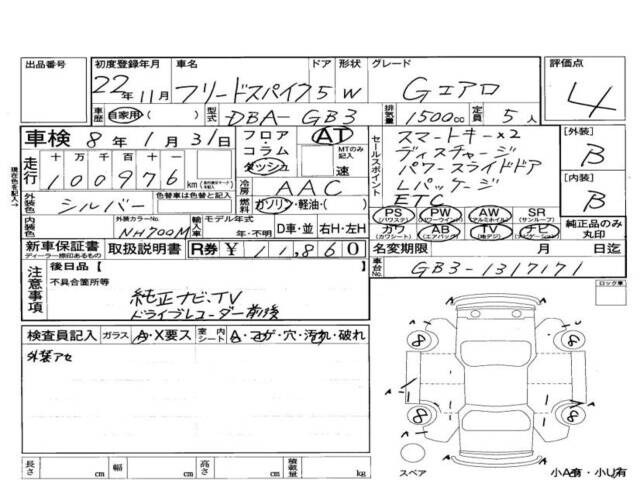 出品番号 初度登録年月 車名 ドア 形状 グレード 評価点
22年11月 フリードスパイク 5 W Gエアロ 4
車歴 自家用( ) 型式 DBA-GB3 排気量 1500cc 定員 5人
車検 8年1月31日 フロア コラム ダッシュ AT MTのみ記入 速
セールスポイント スマートキー×2
ディスチャージ
パワースライドドア
Lパッケージ
ETC
[外装] B
[内装] B
現在色を記入→
走行 十万千百十一
100976km
冷房 AAC
外装色 シルバー 色替車は色替と記入 燃料 ガソリン・軽油・( )
内装色 外装カラーNo. NH700M 輸入車 モデル年式 年・不明 D車・並 右H・左H
PS (パワステ) PW (パワーウィンド) AW (アルミホイル) SR (サンルーフ)
カワ (カワシート) AB (エアバッグ) TV (地デジ) ナビ (ナビゲーション)
純正品のみ丸印
新車保証書 ディーラー捺印あるもの 取扱説明書 R券 ¥11,860 名変期限 月 日迄
注意事項 後日品【 】
不具合箇所等
純正ナビ・TV
ドライブレコーダー前後
車台No. GB3-1317171
ロック車
検査員記入 ガラス A・X要ス 室内シート A・コゲ・穴・汚れ・破れ
外装アセ
8 8
A 1 1 1 1
8 8
スペア 小A有・小U有
長さ cm 幅 cm 高さ cm 積載量 kg